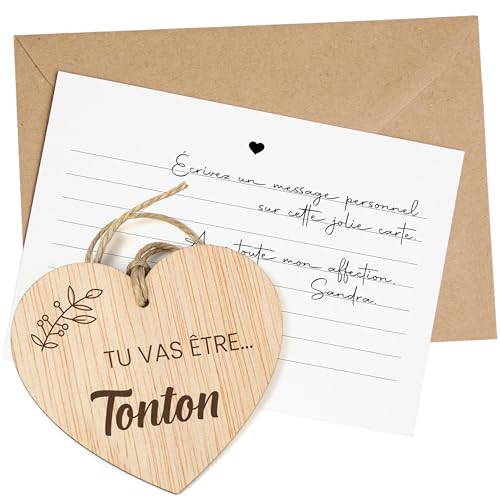 Écrivez un message personnel
sur cette jolie carte.
toute mon affection,
Sandra.
TU VAS ÊTRE...
Tonton